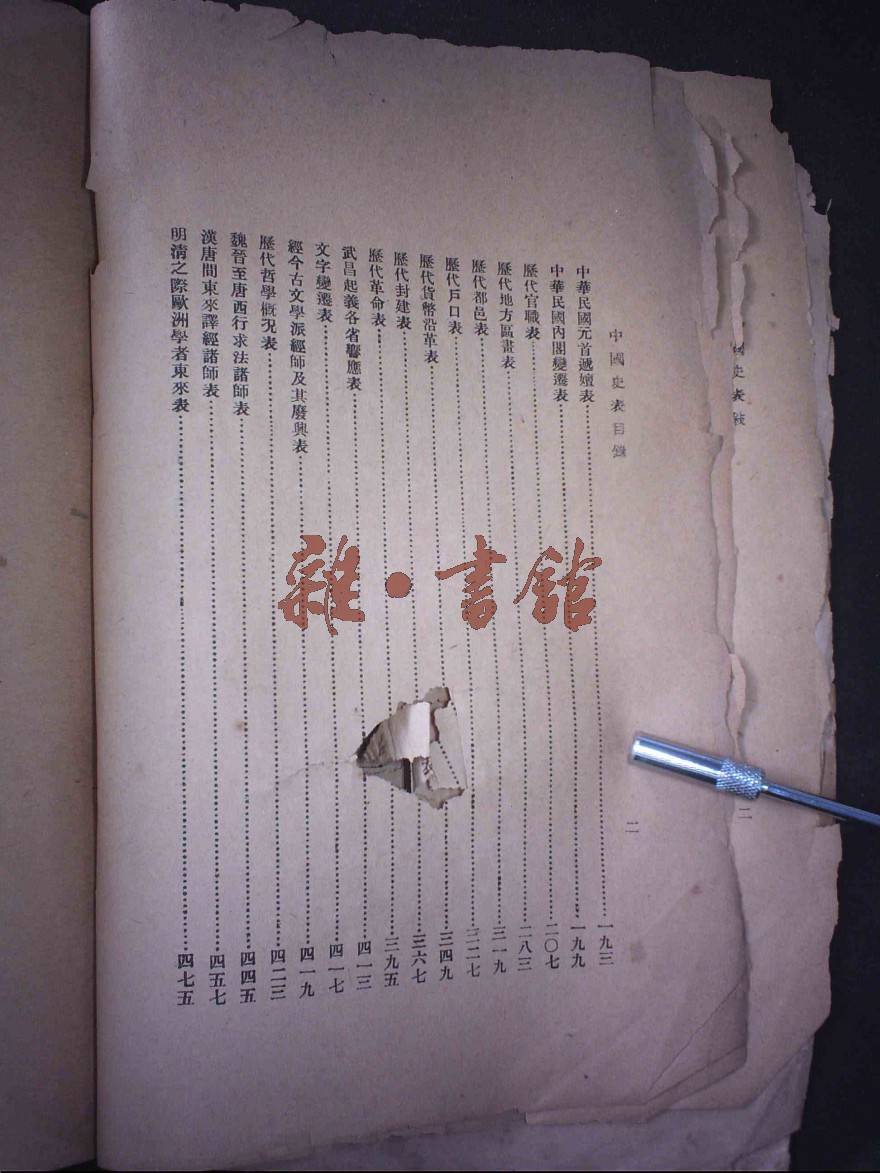 史表
二
中國史表目錄
二
中華民國元首遞嬗表……一九三
中華民國內閣變遷表……一九九
歷代官職表……二〇七
歷代地方區畫表……二八三
歷代都邑表……三一九
歷代戶口表……三二七
歷代貨幣沿革表……三四九
歷代封建表……三六七
歷代革命表……三九五
武昌起義各省響應表……四一三
文字變遷表……四一七
經今古文學派經師及其廢興表……四一九
歷代哲學概況表……四二三
魏晉至唐西行求法諸師表……四四五
漢唐間東來譯經諸師表……四五七
明清之際歐洲學者東來表……四七五
表
雜·書館